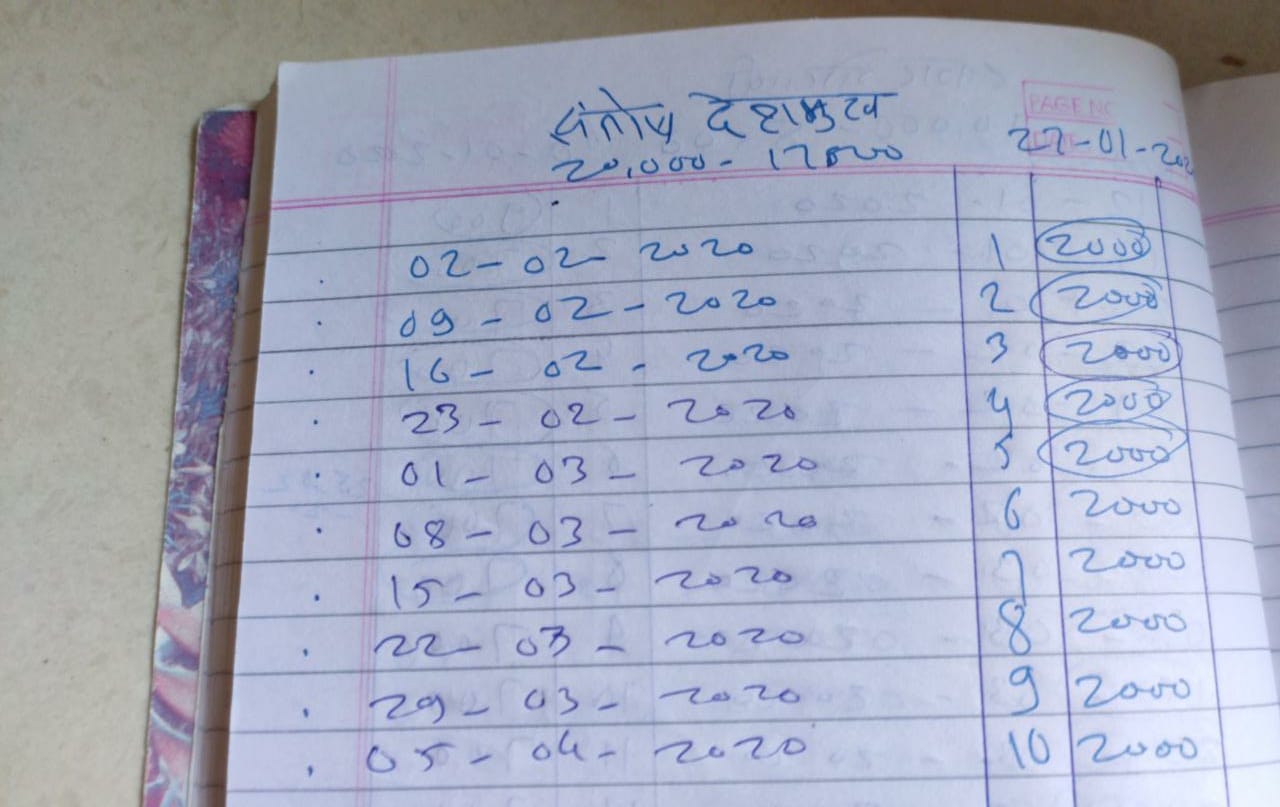 संतोष देशमुख
PAGE NO
20,000 - 17000
22-01-202
02-02-2020 1 2000
09-02-2020 2 2000
16-02-2020 3 2000
23-02-2020 4 2000
01-03-2020 5 2000
08-03-2020 6 2000
15-03-2020 7 2000
22-03-2020 8 2000
29-03-2020 9 2000
05-04-2020 10 2000